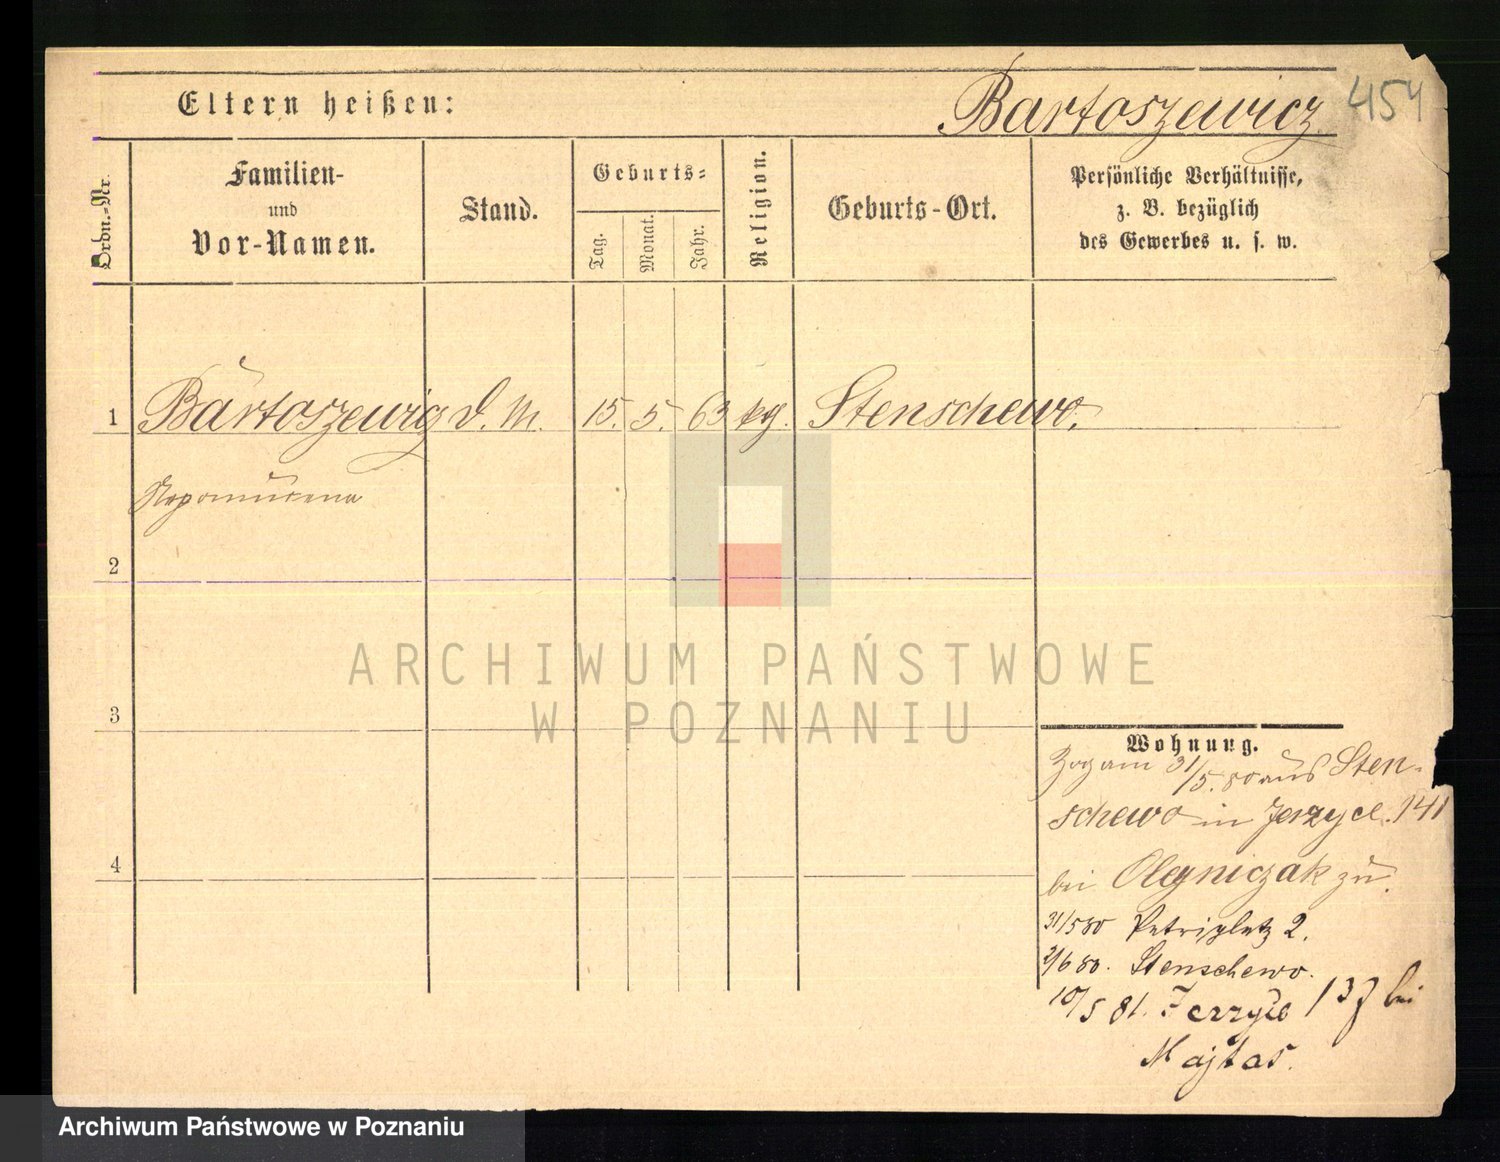 Eltern heißen:
Bartoszewicz
454
Ordn.-Nr.
Familien-
und
Vor-Namen.
Stand.
Geburts-
Tag.
Monat.
Jahr.
Religion.
Geburts-Ort.
Persönliche Verhältnisse,
z. B. bezüglich
des Gewerbes u. s. w.
1 Bartoszewicz d. M. 15. 5. 63 kth. Stenschewo.
Nepomucena
2
3
4
Wohnung.
Zog am 31/5. 80 aus Sten-
schewo in Jerzyce. 141
bei Olejniczak zu.
31/5 80 Petriplatz 2.
2/6 80. Stenschewo.
10/5 81. Jerzyce 137 bei
Majtas.
ARCHIWUM PAŃSTWOWE
W POZNANIU
Archiwum Państwowe w Poznaniu